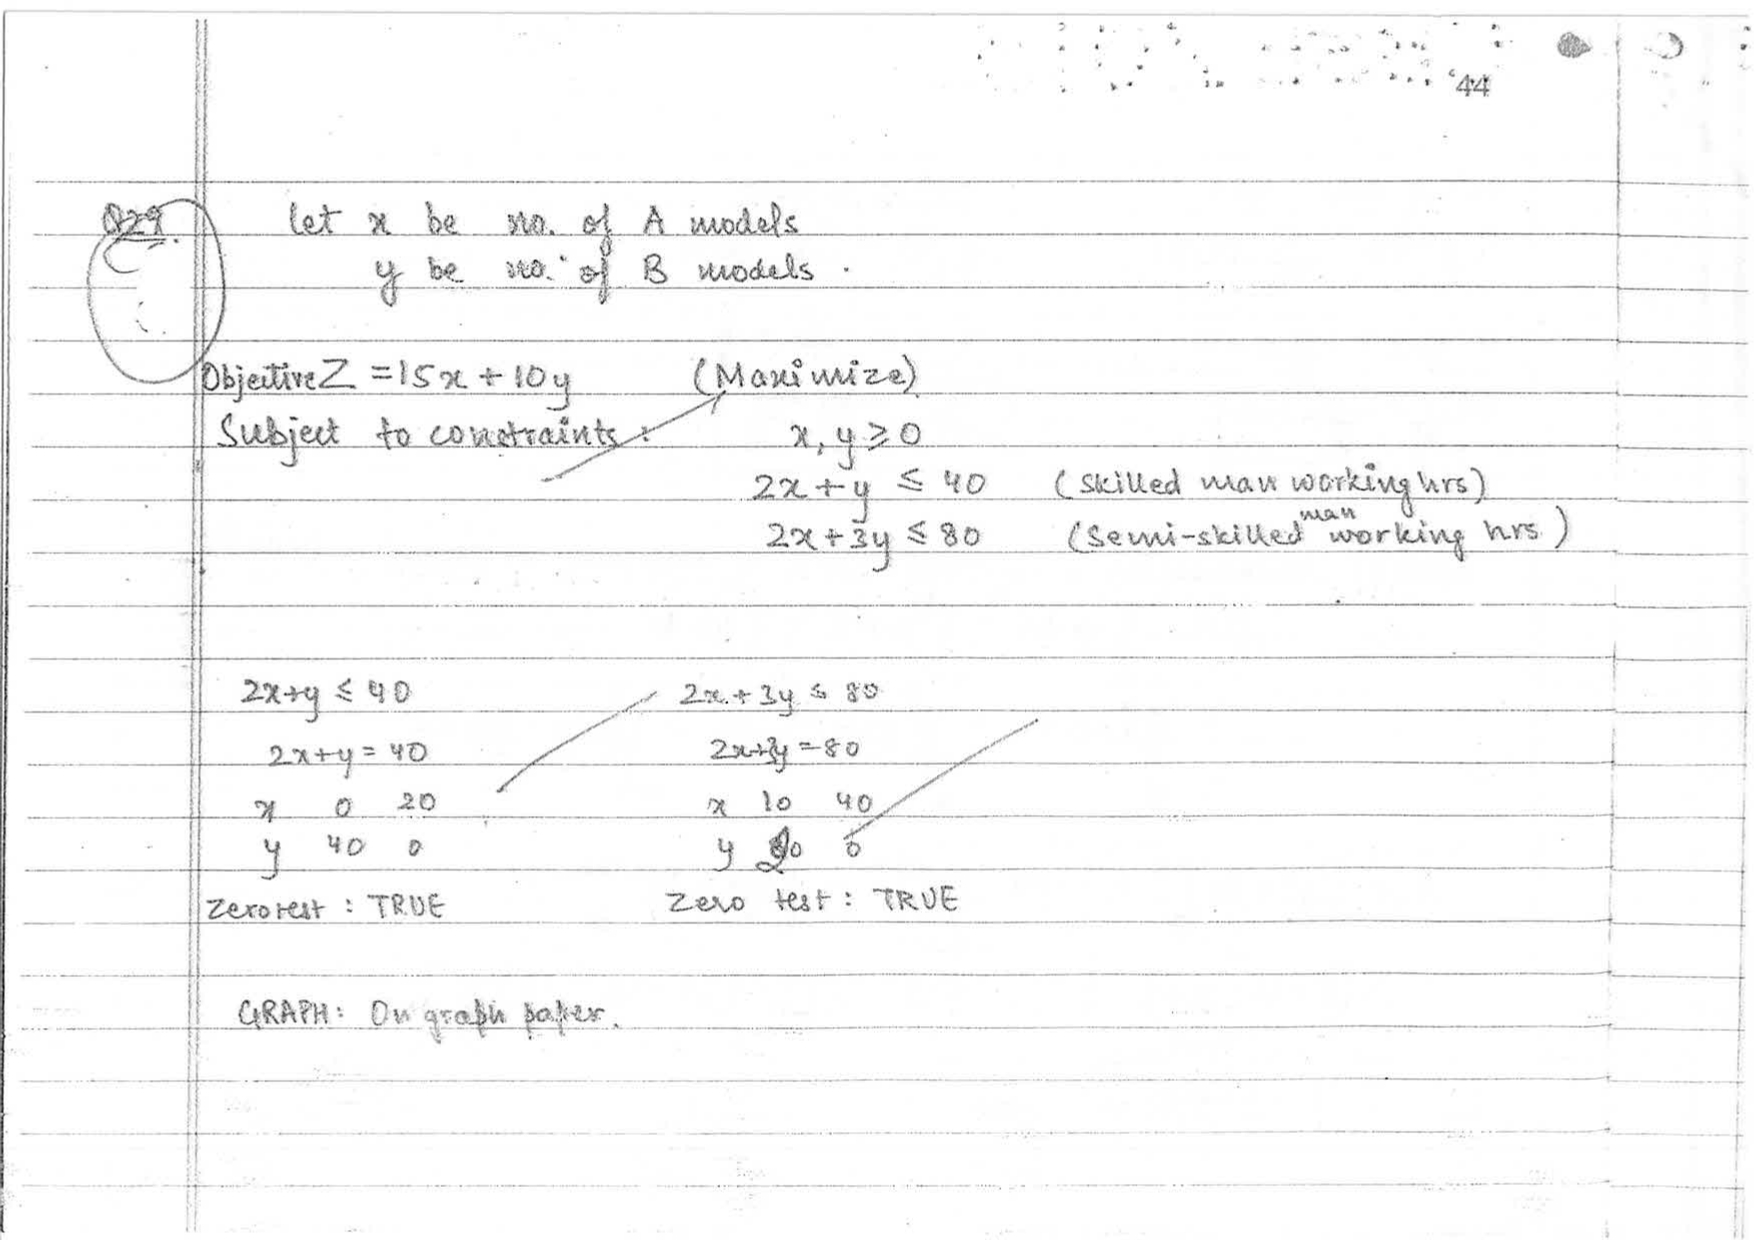 44
Q29.
Let x be no. of A models
y be no. of B models.
Objective Z = 15x + 10y (Maximize)
Subject to constraints: x, y ≥ 0
2x + y ≤ 40 (skilled man working hrs)
2x + 3y ≤ 80 (Semi-skilled man working hrs)
2x+y ≤ 40 2x + 3y ≤ 80
2x+y = 40 2x+3y = 80
x 0 20 x 10 40
y 40 0 y 20 0
Zero test : TRUE Zero test : TRUE
GRAPH: On graph paper.